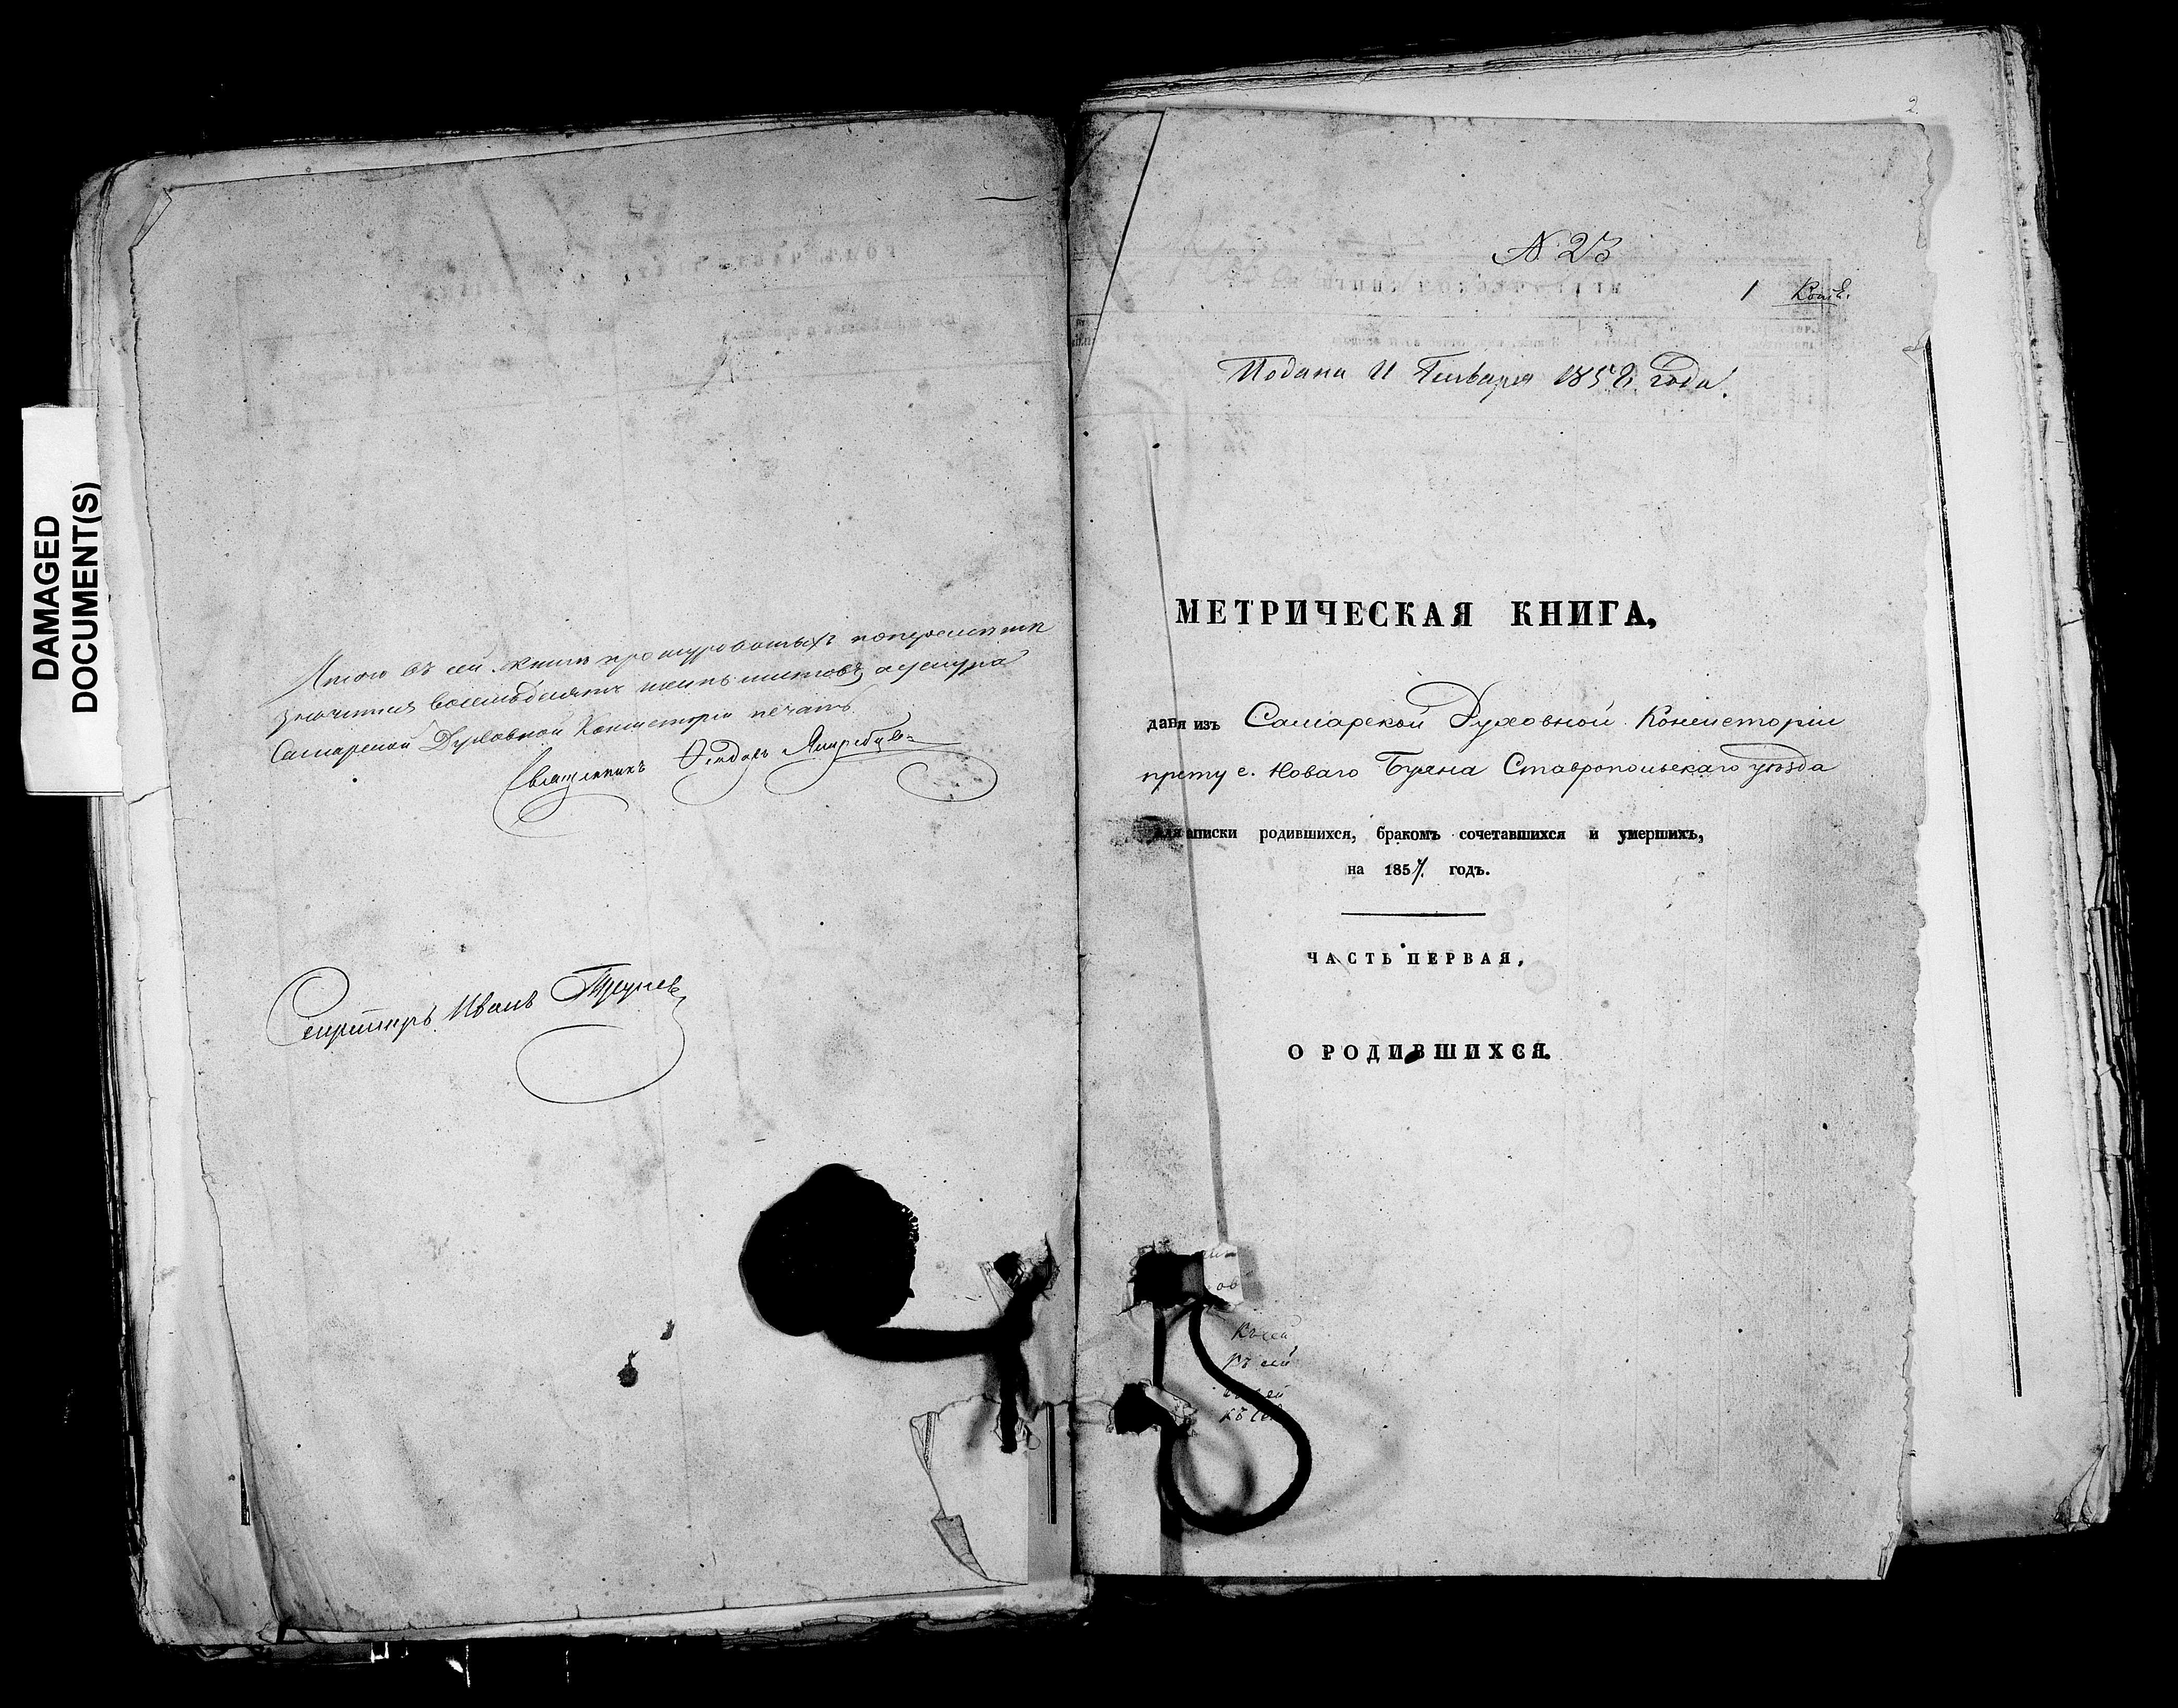 DAMAGED
DOCUMENT(S)
Итого въ сей книгѣ прошнурованныхъ
значится восемьдесятъ листовъ
Самарской Духовной Консисторіи печать
Священникъ Ѳеодоръ
Секретарь Иванъ
2
N 23
1
Подана 11 Генваря 1858 года.
МЕТРИЧЕСКАЯ КНИГА,
данная изъ Самарской Духовной Консисторіи
причту с. Новаго Буяна Ставропольскаго уѣзда
для записки родившихся, бракомъ сочетавшихся и умершихъ,
на 1857. годъ.
ЧАСТЬ ПЕРВАЯ,
О РОДИВШИХСЯ.
ов
Къ сей
Къ сей
къ сей